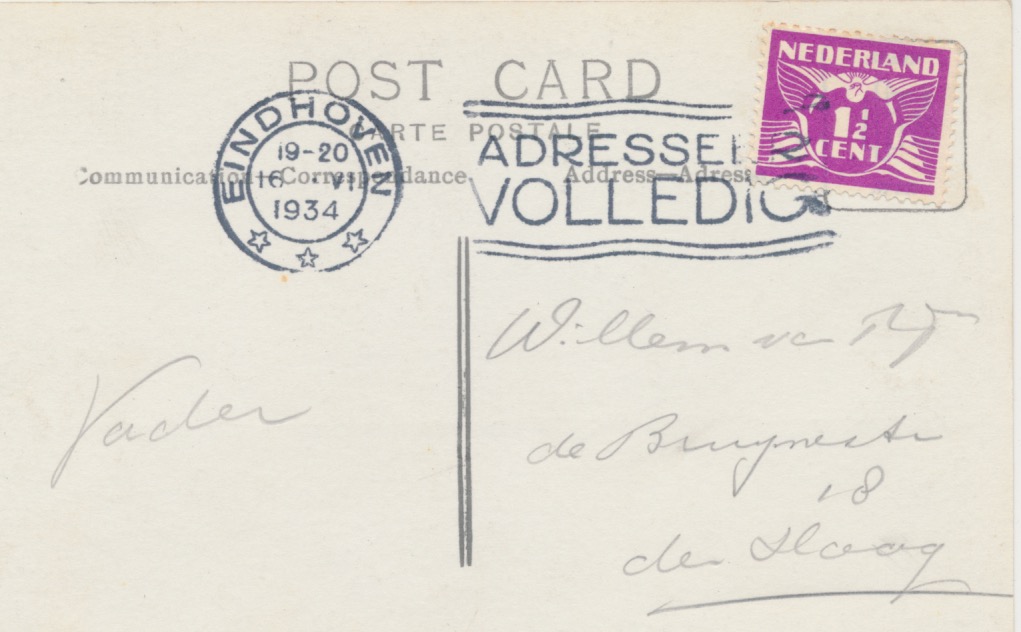 POST CARD
CARTE POSTALE
Communication—Correspondance.
Address—Adress
NEDERLAND
1½
CENT
EINDHOVEN
19-20
16 VI
1934
ADRESSEER
VOLLEDIG
Vader
Willem van Rijn
de Bruynestr
18
den Haag